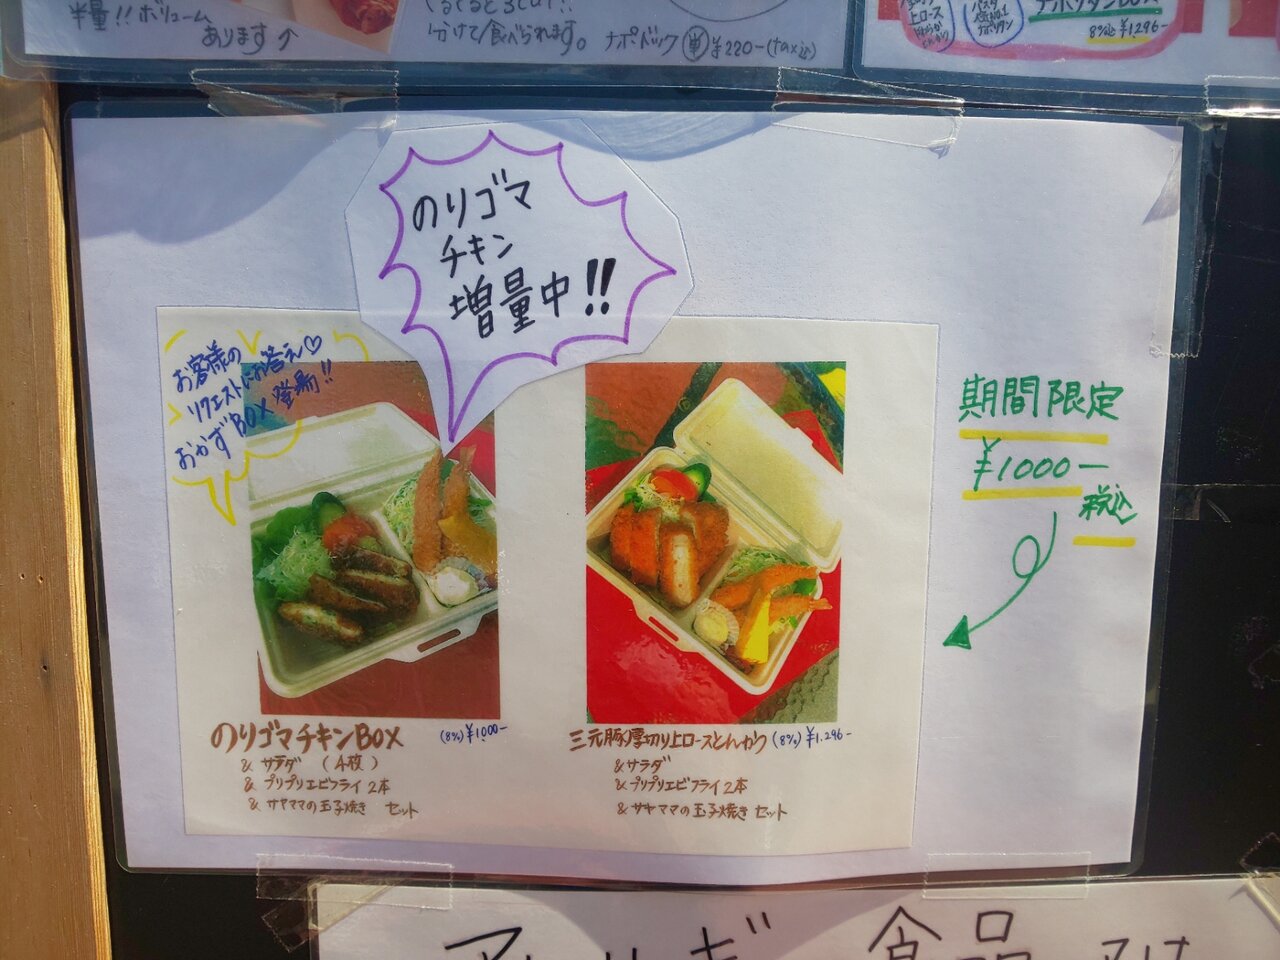 半量!!ボリューム
あります↑
分けて食べられます。
ナポドック 単 ¥220-(tax込)
上ロース
ナポリタンBOX
8%込 ¥1,296-
のりゴマ
チキン
増量中!!
お客様の
リクエストにお答え♡
おかずBOX登場!!
期間限定
¥1000-
税込
のりゴマチキンBOX (8%)¥1000-
& サラダ (4枚)
& プリプリエビフライ2本
& サヤママの玉子焼き セット
三元豚厚切り上ロースとんかつ (8%)¥1,296-
&サラダ
&プリプリエビフライ2本
&サヤママの玉子焼き セット
食品